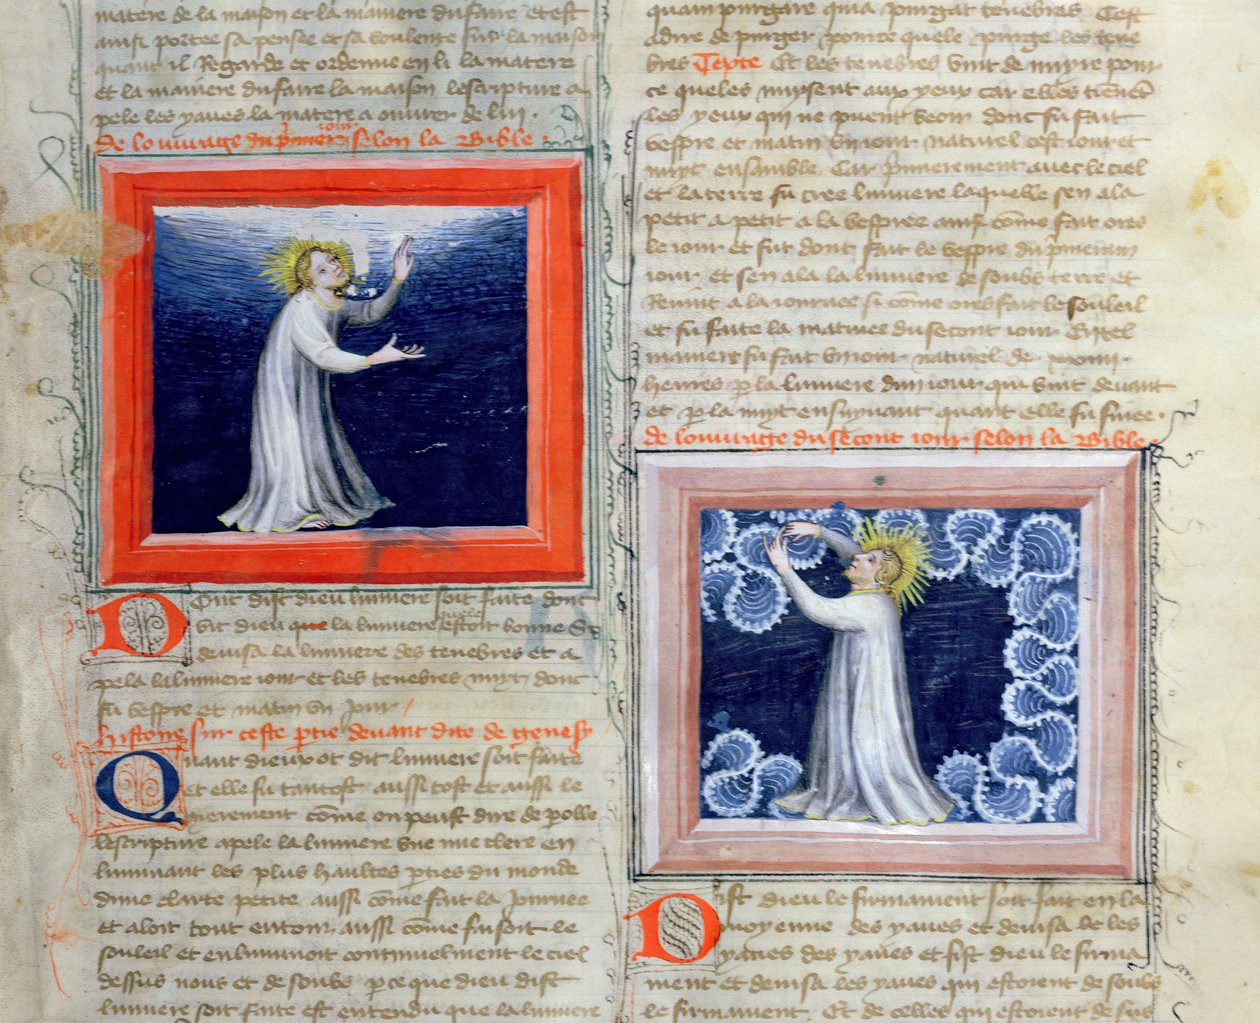 matere de la maison et la maniere du faire et est
ainsi portee sa pensee et sa voulente sur la maison
quant il Regarde et ordenne en li la matere
et la maniere du faire la maison lescripture a
pele les yaues la matere a ouvrer de lui .
de louurage du primer iour selon la Bible .
Donc dist dieu lumiere soit faite dont
vit dieu que la lumiere estoit bonne Et
deuisa la lumiere des tenebres et a
pela la lumiere iour et les tenebres nuyt donc
fu vespre et matin un jour
histoire sur ceste ptie deuant dite de genesy
Quant dieux ot dit lumiere soit faite
et elle fu tantost aussi tost et aussi le
gierement cõme on peust dire de polle
lescripture apele la lumiere vne nue clere en
luminant les plus haultes pties du monde
dune clarte petite aussi cõme fait la Journee
et aloit tout entour aussi cõme fu soit le
souleil et enluminoit continuelment le ciel
dessus nous et de soubz p ce que dieu dist
lumiere soit faite est entendu que la lumiere
quam purgare quia purgat tenebras Cest
adire de purger pource quele purge les tene
bres Texte Et les tenebres vint de nuyre pour
ce queles nuysent aux yeux car elles tienẽt
les yeux qui ne puent veoir donc fu fait
vespre et matin un iour naturel cest iour et
nuyt ensamble Car primerement auec le ciel
et la terre fu cree lumiere laquelle sen ala
petit a petit a la vespree ainsi cõme fait ores
le iour et fut dont fait le vespre du primerain
iour et sen ala la lumiere de soubs terre et
Reuint a la iournee si cõme ores fait le souleil
et fu faite la matinee du second iour En tel
maniere fu fait un iour naturel de xxiiii
heures p la lumiere dun iour qui vint deuant
et p la nuyt ensuyuant quant elle fu finee .
de louurage du secont iour selon la Bible .
Dist dieu le firmament soit fait en la
moyenne des yaues et deuisa de les
yaues des yaues et fist dieu le firma
ment et deuisa les yaues qui estoient de soubs
le firmament Et de celles qui estoient de sus